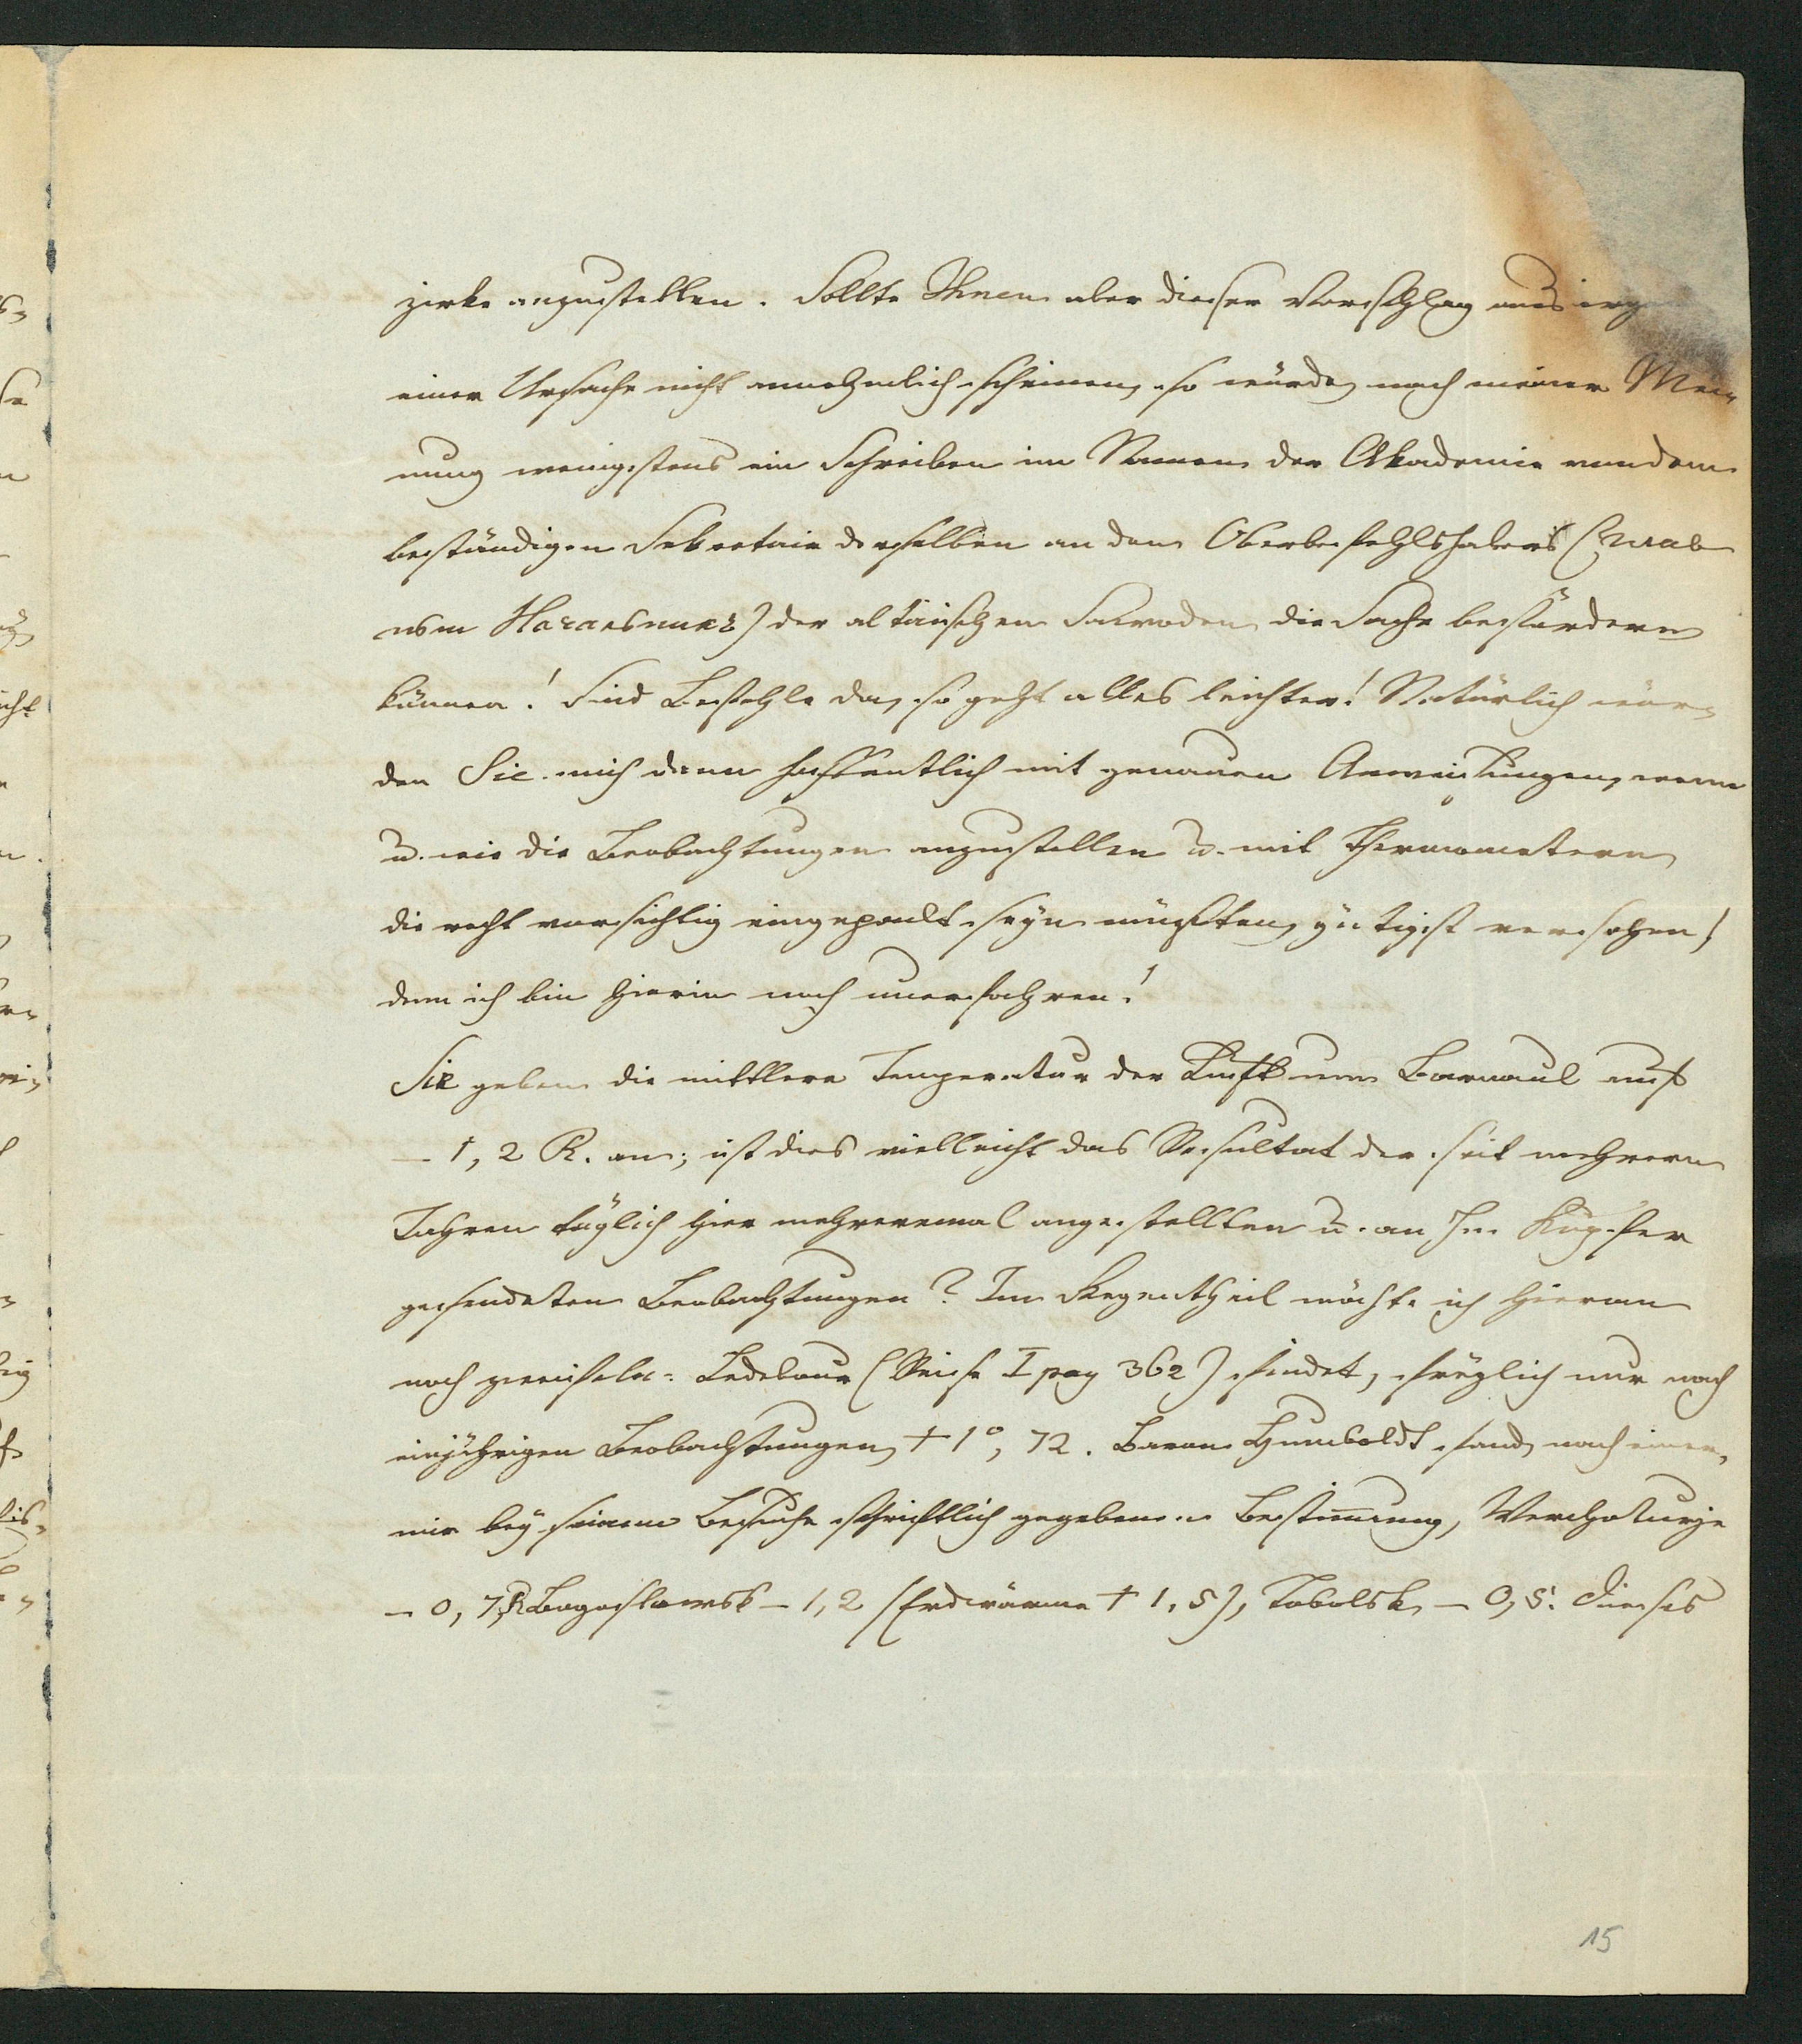 zirke anzustellen. Sollte Ihnen aber dieser Vorschlag aus irg
einer Ursache nicht annehmlich scheinen, so würde, nach meiner Mei-
nung wenigstens ein Schreiben im Namen der Akademie von dem
beständigen Sekretair derselben an den Oberbefehlshaber (Глав
нын Начальникъ) der altaischen Sawoden die Sache befördern
können! Sind Befehle da, so geht alles leichter! Natürlich wür-
den Sie mich dann hoffentlich mit genauen Anweisungen, wann
u. wie die Beobachtungen anzustellen u. mit Thermometern
die recht vorsichtig eingepackt seyn müssten, gütigst versehen,
denn ich bin hierin noch unerfahren!
Sie geben die mittlere Temperatur der Luft um Barnaul auf
– 1, 2 R. an; ist dies vielleicht das Resultat der seit mehrern
Jahren täglich hier mehreremal angestellten u. an Hn Kupfer
gesendeten Beobachtungen? Im Gegentheil möchte ich hieran
noch zweifeln: Ledebour (Reise I pag 362) findet, freylich nur nach
einjährigen Beobachtungen, + 1°, 72. Baron Humboldt fand, nach einer,
mir bey seinem Besuche schriftlich gegebenen Bestimmung, Werchoturje
– 0, 7, R Bogoslowsk – 1, 2 (Erdwärme + 1, 5), Tobolsk, – 0, 5. Dieses
15